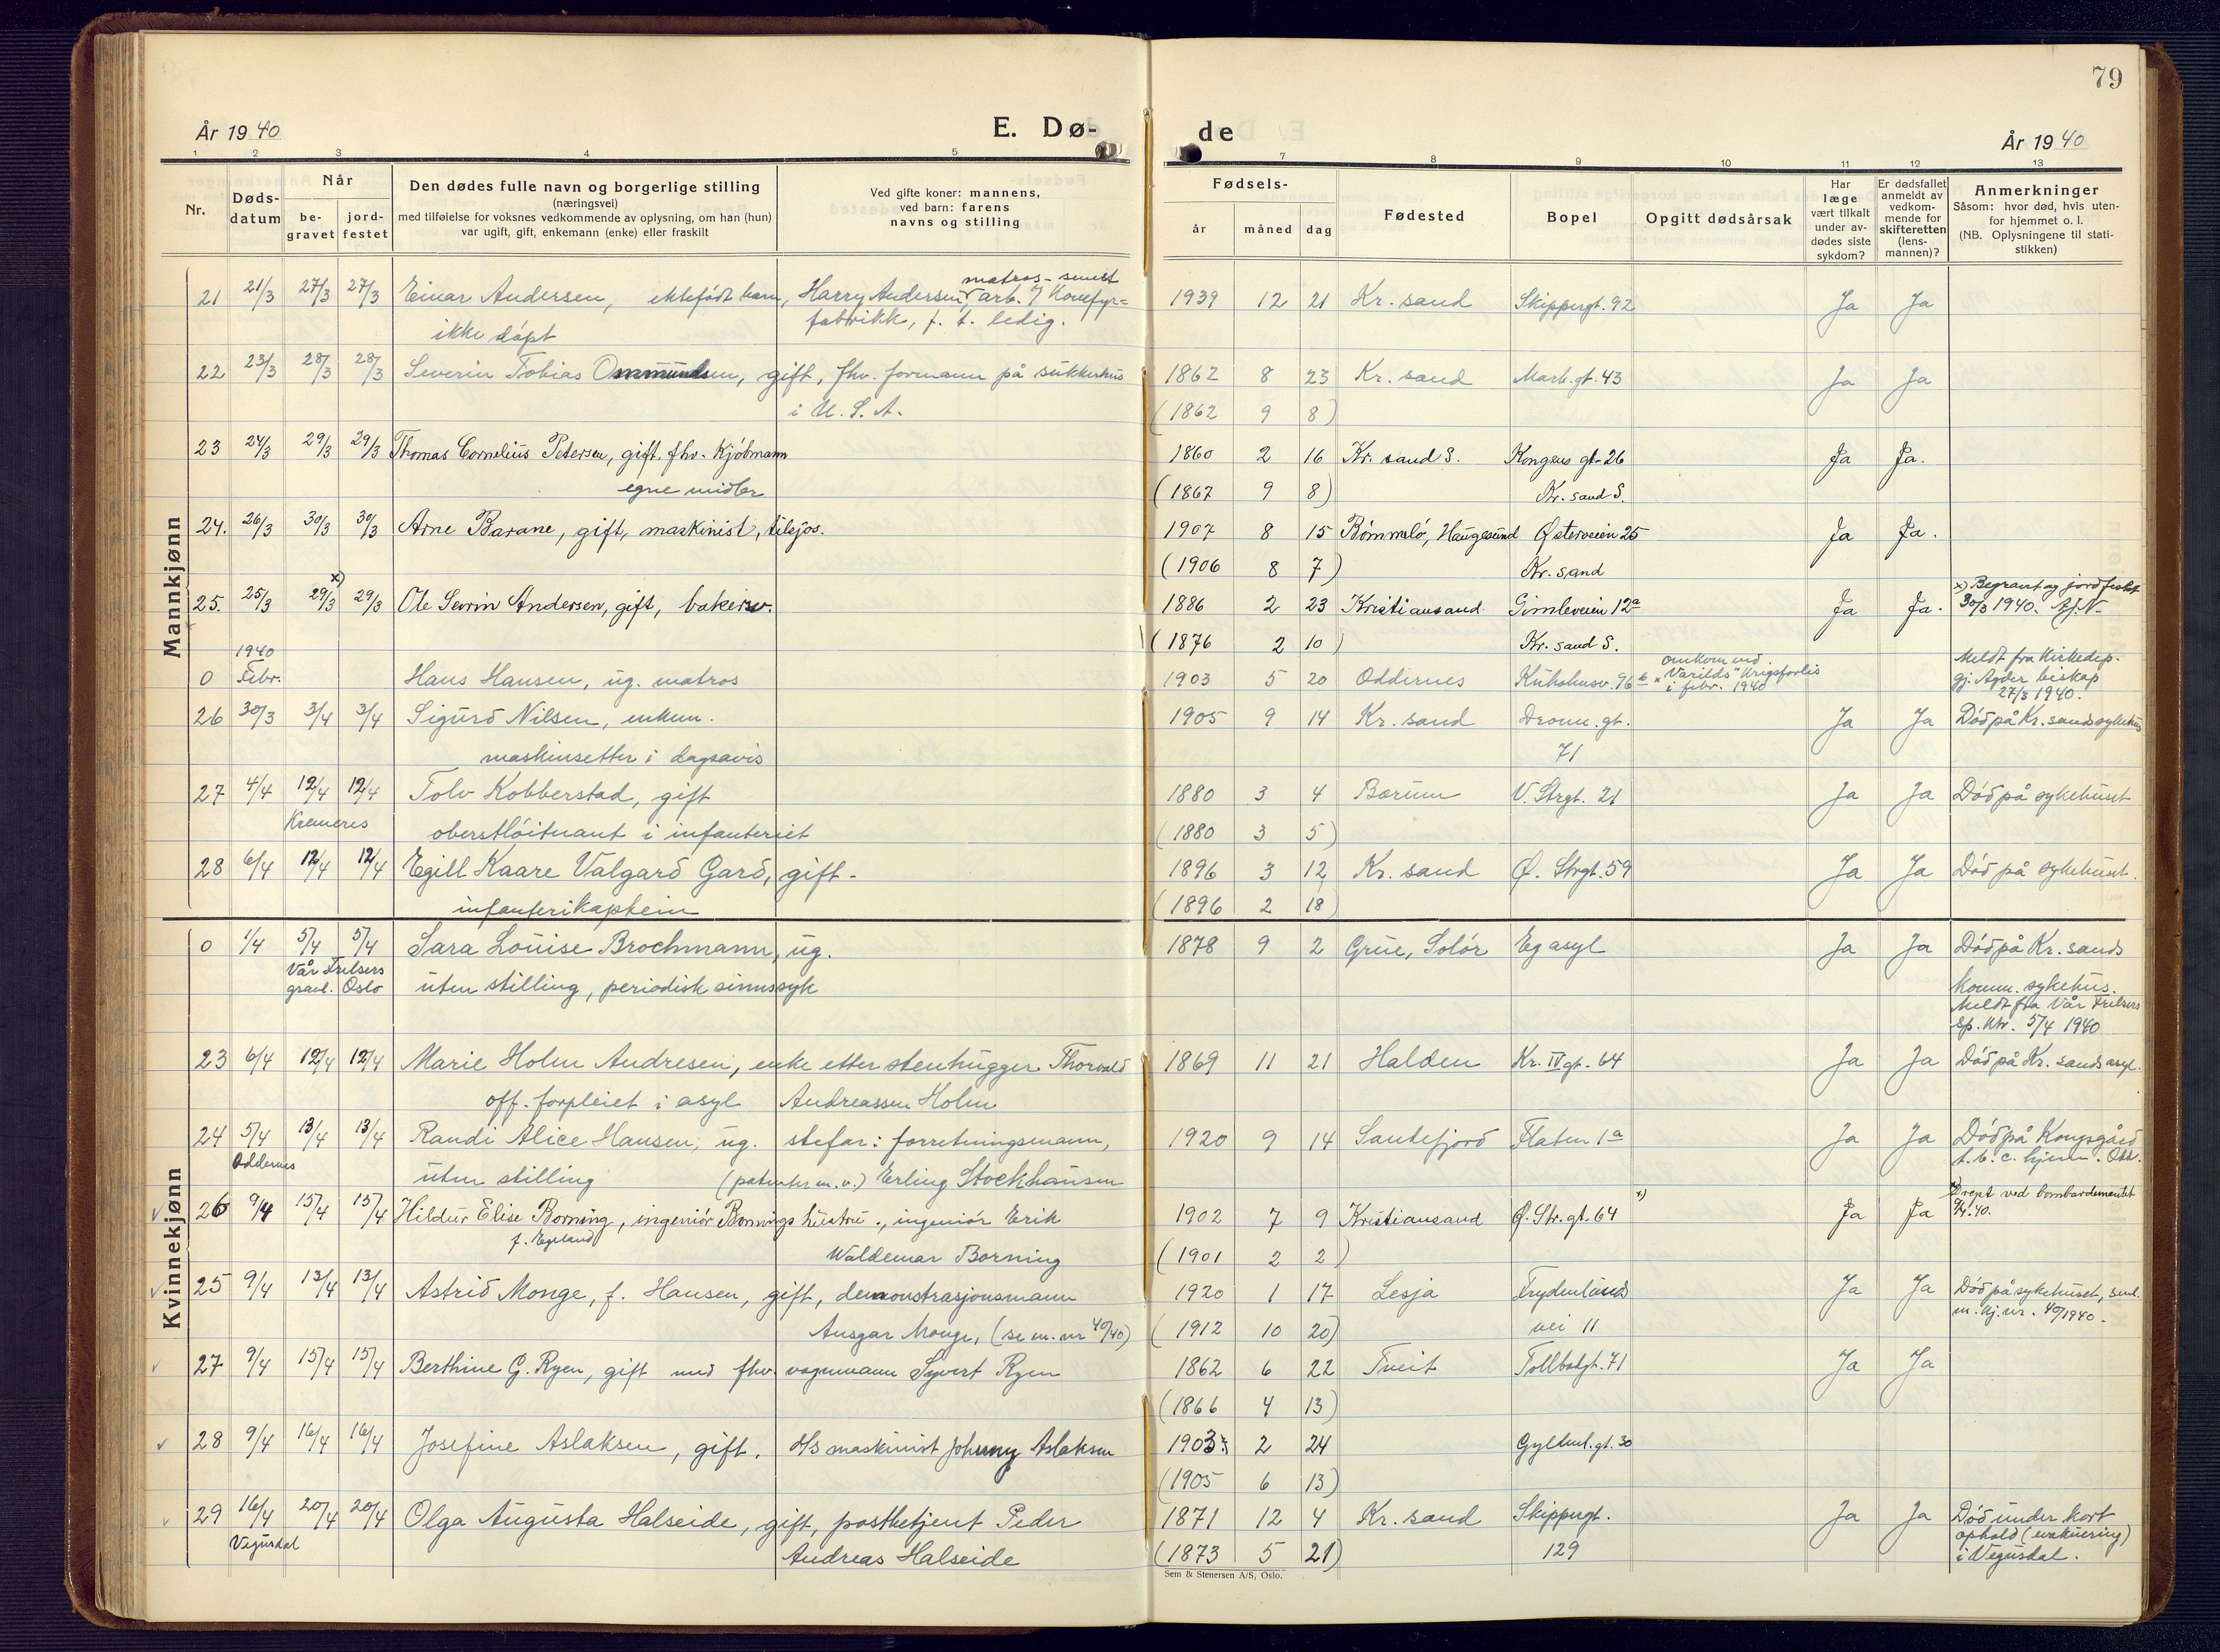 79
År 1940
E. Dø-
de
År 1940
1 2 3 4 5 7 8 9 10 11 12 13
Nr.
Døds-
datum
Når
be-
gravet
jord-
festet
Den dødes fulle navn og borgerlige stilling
(næringsvei)
med tilføielse for voksnes vedkommende av oplysning, om han (hun)
var ugift, gift, enkemann (enke) eller fraskilt
Ved gifte koner: mannens,
ved barn: farens
navns og stilling
Fødsels-
år måned dag
Fødested
Bopel
Opgitt dødsårsak
Har
læge
vært tilkalt
under av-
dødes siste
sykdom?
Er dødsfallet
anmeldt av
vedkom-
mende for
skifteretten
(lens-
mannen)?
Anmerkninger
Såsom: hvor død, hvis uten-
for hjemmet o. l.
(NB. Oplysningene til stati-
stikken)
Mannkjønn
matros - senest
21 21/3 27/3 27/3 Einar Andersen, ektefødt barn, Harry Andersen, arb. 1939 12 21 Kr. sand Skippergt. 92 Ja Ja
ikke døpt fabrikk, f. t. ledig.
22 23/3 28/3 28/3 Severin Tobias Ommundsen, gift, fhv. formann på sukkerhus 1862 8 23 Kr. sand Mark.gt. 43 Ja Ja
i U. S. A. (1862 9 8)
23 24/3 29/3 29/3 Thomas Cornelius Petersen, gift, fhv. kjøbmann 1860 2 16 Kr. sand S. Kongens gt. 26 Ja Ja.
egne midler (1867 9 8) Kr. sand S.
24. 26/3 30/3 30/3 Arne Barane, gift, maskinist, tilsjøs. 1907 8 15 Bømmelø, Haugesund Østerveien 25 Ja Ja.
(1906 8 7) Kr. sand
25. 25/3 29/3 x) 29/3 Ole Sevrin Andersen, gift, bakersv. 1886 2 23 Kristiansand Gimleveien 12a Ja Ja. x) Begravet og jordfestet
30/3 1940.
(1876 2 10) Kr. sand S.
0 1940 Febr. Hans Hansen, ug. matros 1903 5 20 Oddernes Kuholmsv. 96b omkom ved
"Varilds" krigsforlis
i febr. 1940
Meldt fra Kirkedep.
gj. Agder biskap
27/3 1940.
26 30/3 3/4 3/4 Sigurd Nilsen, enkem. 1905 9 14 Kr. sand Dronn. gt. Ja Ja Død på Kr. sands sykehus
maskinsetter i dagsavis 71
27 4/4 12/4 12/4 Tolv Kobberstad, gift 1880 3 4 Bærum V. Strgt. 21 Ja Ja Død på sykehuset
Kremeres oberstløitnant i infanteriet (1880 3 5)
28 6/4 12/4 12/4 Egill Kaare Valgard Gard, gift - 1896 3 12 Kr. sand Ø. Strgt. 59 Ja Ja Død på sykehuset.
infanterikaptein (1896 2 18)
Kvinnekjønn
0 1/4 5/4 5/4 Sara Louise Brochmann, ug. 1878 9 2 Grue, Solør Eg asyl Ja Ja Død på Kr. sands
Vår Frelsers
gravl. Oslo uten stilling, periodisk sinnssyk komm. sykehus.
Meldt fra Vår Frelsers
sp. ktr. 5/4 1940
23 6/4 12/4 12/4 Marie Holm Andresen, enke etter stenhugger Thorvald 1869 11 21 Halden Kr. IV gt. 64 Ja Ja Død på Kr. sands asyl.
off. forpleiet i asyl Andreassen Holm
24 5/4 13/4 13/4 Randi Alice Hansen, ug. stefar: forretningsmann, 1920 9 14 Sandefjord Flaten 1a Ja Ja Død på Kongsgård
Oddernes uten stilling (patenter m. v.) Erling Stockhausen t. b. c. hjem. Odd.
26 9/4 15/4 15/4 Hildur Elise Borning, ingeniør Bornings hustru., ingeniør Erik 1902 7 9 Kristiansand Ø. Str. gt. 64 x) Ja Ja x) Drept ved bombardementet
9/4.40.
f. Egeland Waldemar Borning (1901 2 2)
25 9/4 13/4 13/4 Astrid Monge, f. Hansen, gift, demonstrasjonsmann 1920 1 17 Lesja Frydenlunds Ja Ja Død på sykehuset, sml.
m. kj. nr. 40/1940.
Ansgar Monge, (se m. nr 40/40) (1912 10 20) vei 11
27 9/4 15/4 15/4 Berthine G. Ryen, gift med fhv. vognmann Syvert Ryen 1862 6 22 Tveit Tollbodgt. 71 Ja Ja
(1866 4 13)
28 9/4 16/4 16/4 Josefine Aslaksen, gift. d/s maskinist Johnny Aslaksen 1903 2 24 Gyldenl. gt. 30
(1905 6 13)
29 16/4 20/4 20/4 Olga Augusta Halseide, gift, postbetjent Peder 1871 12 4 Kr. sand Skippergt. Ja Ja Død under kort
Vegusdal Andreas Halseide (1873 5 21) 129 ophold (evakuering)
i Vegusdal.
Sem & Stenersen A/S, Oslo.